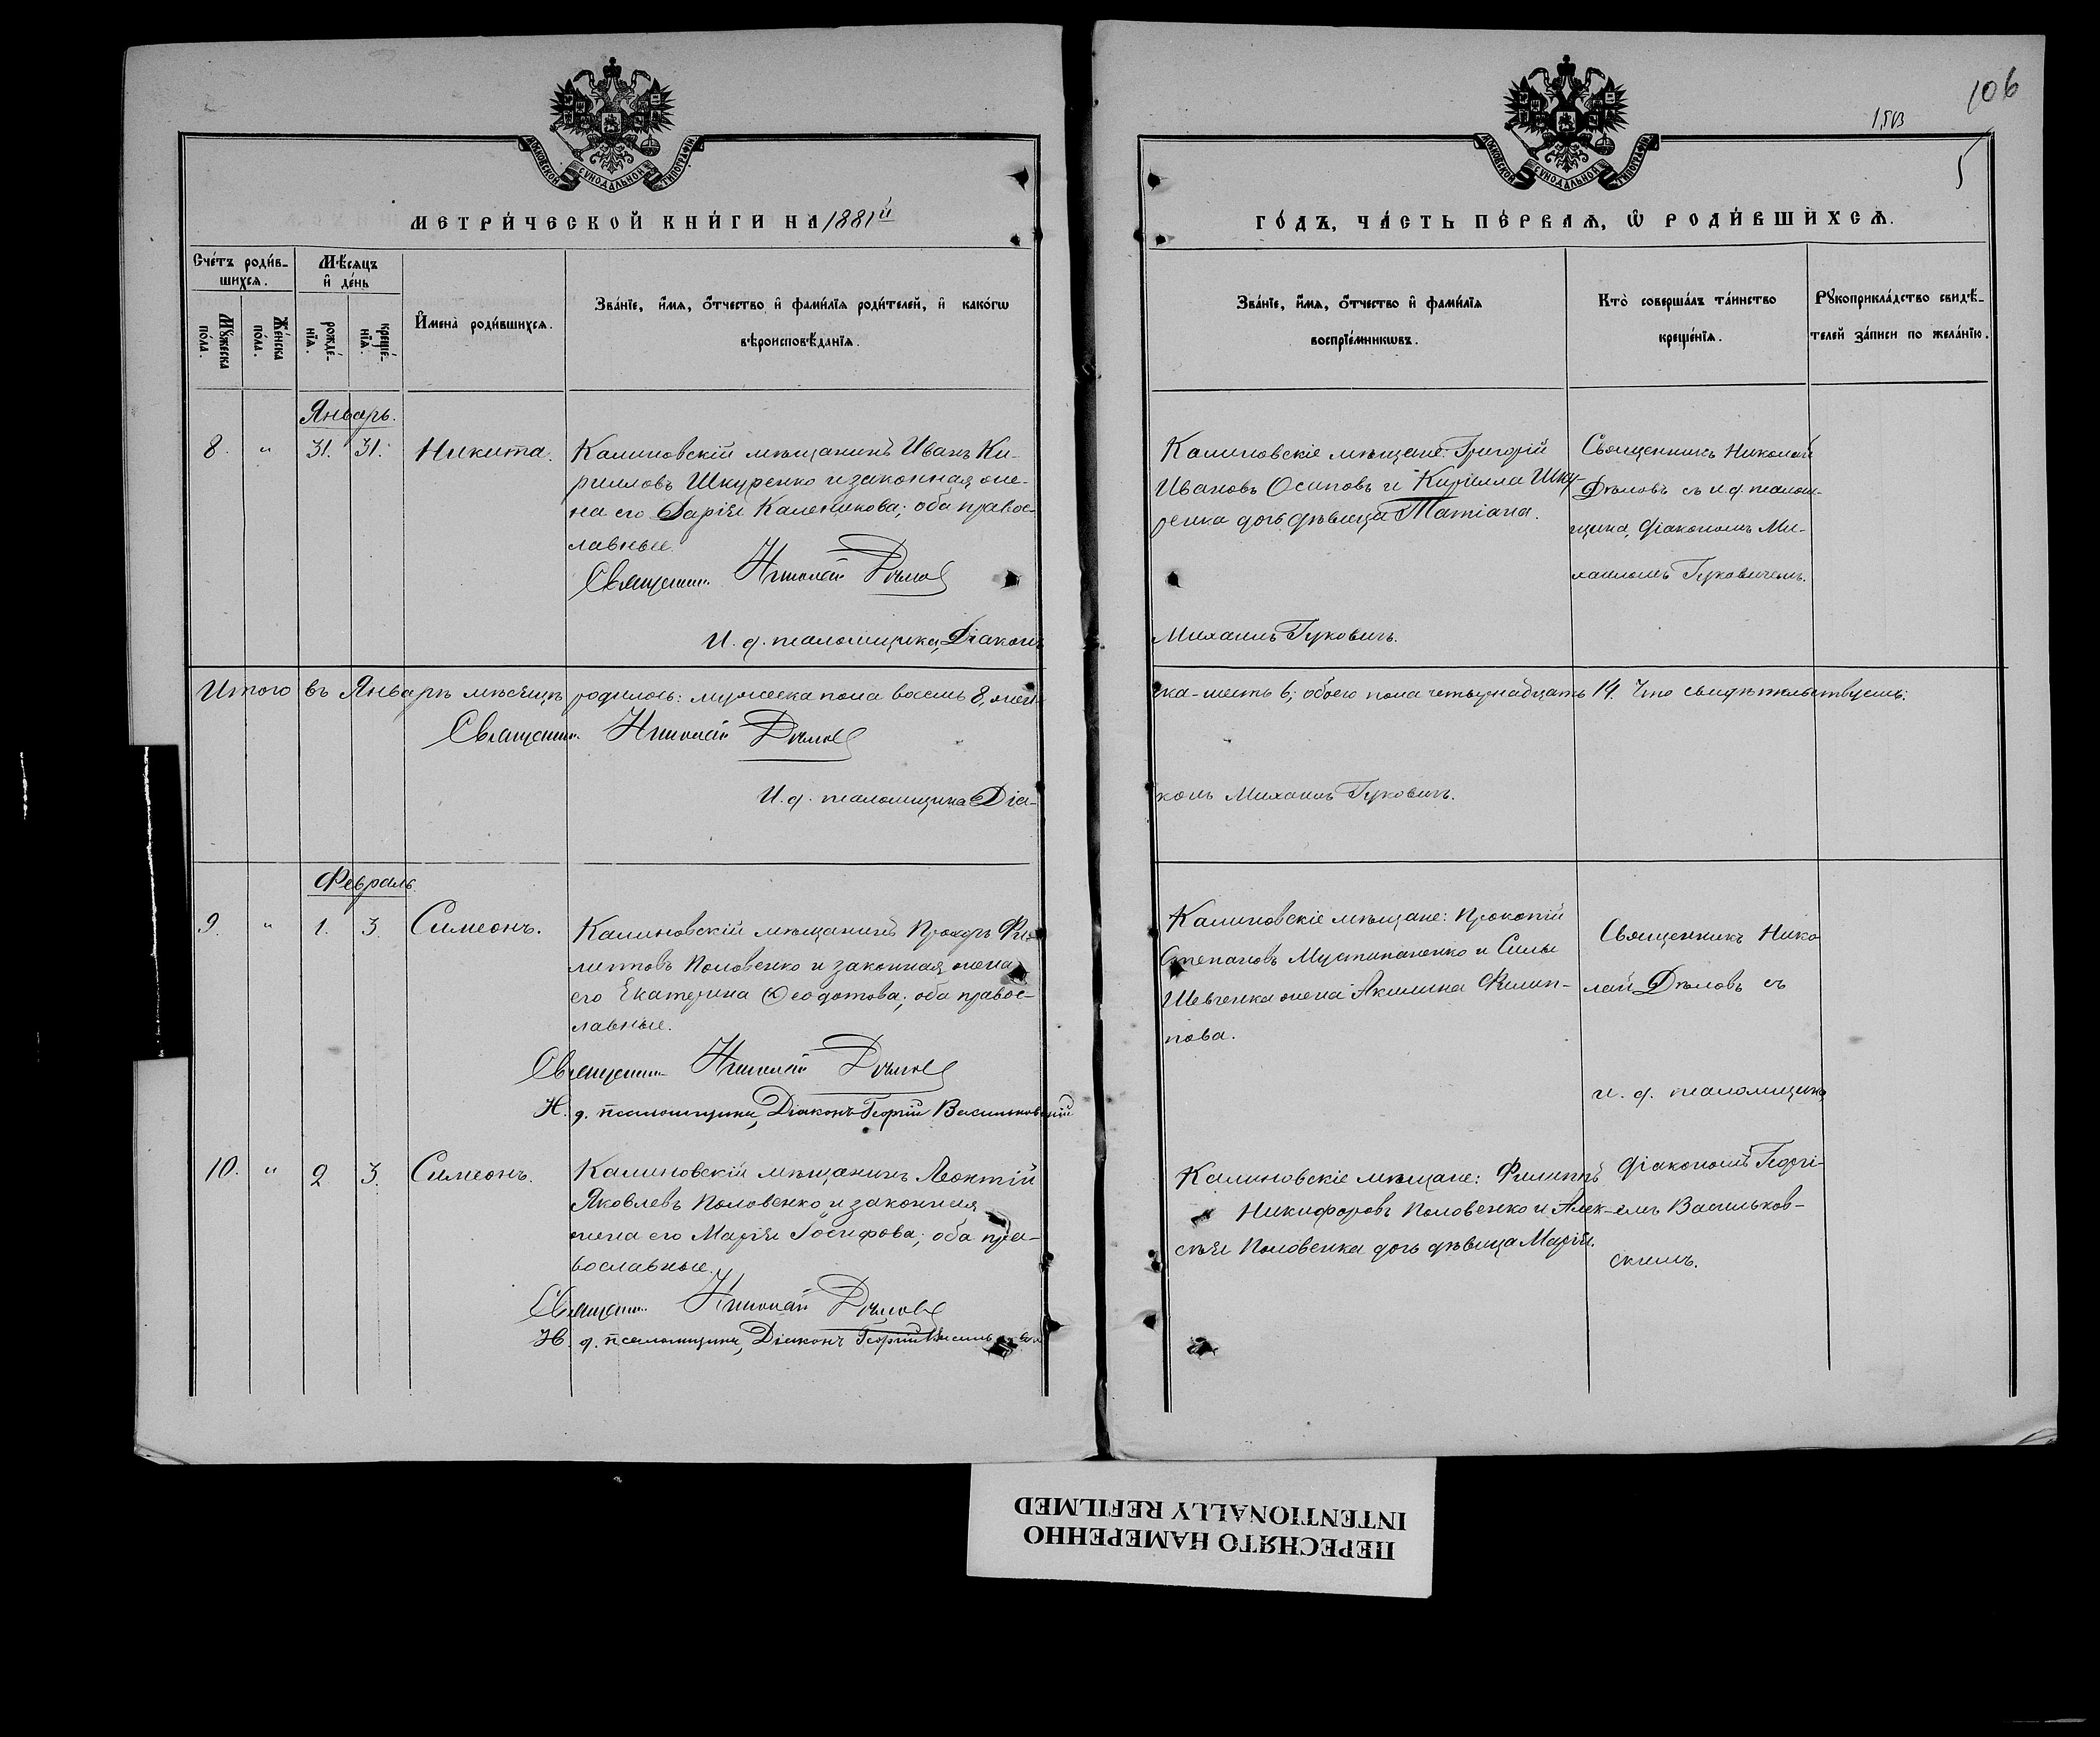 106
1513
5
МОСКОВСКОЙ СѴНОДАЛЬНОЙ ТИПОГРАФІИ
МОСКОВСКОЙ СѴНОДАЛЬНОЙ ТИПОГРАФІИ
МЕТРИ́ЧЕСКОЙ КНИ́ГИ НА 1881й
ГО́ДЪ, ЧА́СТЬ ПЕ́РВАѦ, Ѡ РОДИ́ВШИХСѦ.
Сче́тъ роди́в-
шихсѧ.
Мѣ́сѧцъ
и҆ де́нь
Мꙋ́жеска
по́ла.
Же́нска
по́ла.
рожде́-
нїѧ.
креще́-
нїѧ.
И҆мена̀ роди́вшихсѧ.
Зва́нїе, и҆́мѧ, ѻ҆́тчество и҆ фами́лїѧ роди́телей, и҆ како́гѡ
вѣроисповѣ́данїѧ.
Зва́нїе, и҆́мѧ, ѻ҆́тчество и҆ фами́лїѧ
воспрїе́мникѡвъ.
Кто̀ соверша́лъ та́инство
креще́нїѧ.
Рꙋкоприкла́дство свидѣ́-
телей за́писи по жела́нїю.
Январь.
8. " 31. 31. Никита.
Калиновскій мѣщанинъ Иванъ Ки-
рилловъ Шкуренко и законная же-
на его Дарія Каленикова; оба правос-
лавные.
Священник Николай Дѣлов
И. д. псаломщика, Діаконъ
Калиновскіе мѣщане: Григорій
Ивановъ Осиповъ и Кирилла Шку-
ренка дочь дѣвица Татіана.
Михаилъ Гуковичъ.
Священникъ Николай
Дѣловъ съ и. д. псалом-
щика, діакономъ Ми-
хаиломъ Гуковичемъ.
Итого въ Январѣ мѣсяцѣ родилось: мужеска пола восемь 8, жен-
ска-шесть 6; обоего пола четырнадцать 14. Что свидѣтельствуемъ:
Священник Николай Дѣлов
И. д. псаломщика Діа-
конъ Михаилъ Гуковичъ.
Февраль.
9. " 1. 3. Симеонъ.
Калиновскій мѣщанинъ Прохоръ Фи-
липповъ Половенко и законная жена
его Екатерина Ѳеодотова; оба правос-
лавные.
Священник Николай Дѣлов
И. д. псаломщика, Діаконъ Георгій Васильковскій
Калиновскіе мѣщане: Прокопій
Степановъ и Силы
Шевченка жена Акилина Филип-
пова.
Священникъ Нико
лай Дѣловъ съ
и. д. псаломщика
10. " 2 3. Симеонъ.
Калиновскій мѣщанинъ Леонтій
Яковлевъ Половенко и законная
жена его Марія Іосифова; оба пра-
вославные.
Священник Николай Дѣлов
И. д. псаломщика, Діаконъ Георгій
Калиновскіе мѣщане: Филиппъ
Никифоровъ Половенко и Алек-
сѣя Половенка дочь дѣвица Марія.
діакономъ Георгі-
емъ Васильков-
скимъ.
ПЕРЕСНЯТО НАМЕРЕННО
INTENTIONALLY REFILMED